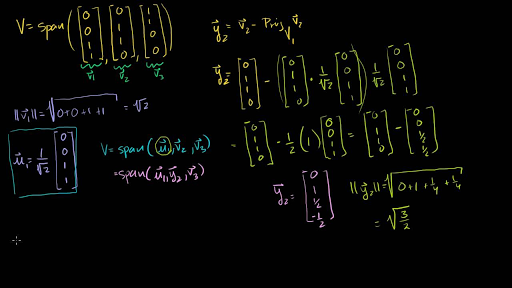 V = span([0 0 1 1], [0 1 1 0], [1 1 0 0])
v⃗₁ v⃗₂ v⃗₃
||v⃗₁|| = √(0+0+1+1) = √2
u⃗₁ = 1/√2 [0 0 1 1]
V = span(u⃗₁, v⃗₂, v⃗₃)
= span(u⃗₁, y⃗₂, v⃗₃)
y⃗₂ = v⃗₂ - Proj_V₁ v⃗₂
y⃗₂ = [0 1 1 0] - ([0 1 1 0] · 1/√2 [0 0 1 1]) 1/√2 [0 0 1 1]
= [0 1 1 0] - 1/2 (1) [0 0 1 1] = [0 1 1 0] - [0 0 1/2 1/2]
y⃗₂ = [0 1 1/2 -1/2]
||y⃗₂|| = √(0+1+1/4+1/4)
= √(3/2)